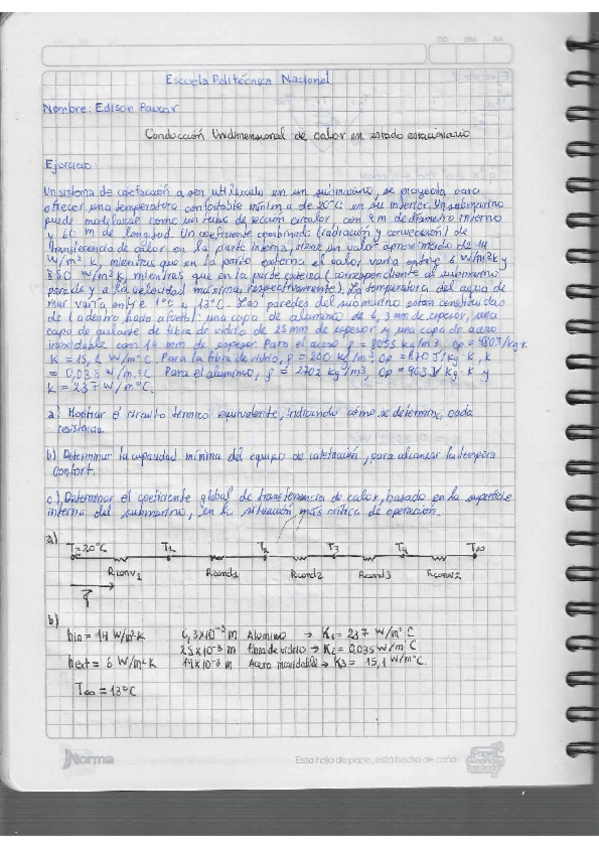 Escuela Politécnica Nacional
Nombre: Edison Paucar
Conducción Unidimensional de calor en estado estacionario
Ejercicio:
Un sistema de calefacción a ser utilizado en un submarino, se proyecta para
ofrecer una temperatura confortable mínima de 20°C en su interior. Un submarino
puede modelarse como un tubo de sección circular con 9 m de diámetro interno
y 60 m de longitud. Un coeficiente combinado (radiación y convección) de
transferencia de calor en la parte interna, tiene un valor aproximado de 14
W/m² K, mientras que en la parte externa el calor varia entre 6 W/m²K y
850 W/m² K, mientras que en la parte externa (correspondiente al submarino
parado y a la velocidad máxima, respectivamente). La temperatura del agua de
mar varia entre 1°C y 13°C. Las paredes del submarino estan construidas
de (adentro hacia afuera): una capa de aluminio de 6,3 mm de espesor, una
capa de aislante de fibra de vidrio de 25 mm de espesor y una capa de acero
inoxidable con 14 mm de espesor. Para el acero ρ = 8055 kg/m3, Cp = 480J/kg·k
K = 15,1 W/m°C. Para la fibra de vidrio, ρ = 200 kg/m³, Cp = 670 J/kg·k, k
= 0,035 W/m.°C Para el aluminio, ρ = 2702 kg/m3, Cp = 903J/kg·K y
K = 237 W/m°C.
a) Mostrar el circuito térmico equivalente, indicando cómo se determina cada
resistencia.
b) Determinar la capacidad mínima del equipo de calefacción, para alcanzar la tempera
confort.
c) Determinar el coeficiente global de transferencia de calor, basado en la superficie
interna del submarino, en la situación más crítica de operación.
a) T=20°C T1 T2 T3 T4 T∞
Rconv1 Rcond1 Rcond2 Rcond3 Rconv2
b)
hin = 14 W/m²·K 6,3x10⁻³ m Aluminio → K1 = 237 W/m°C
25x10⁻³ m Fibra de vidrio → K2 = 0,035 W/m°C
hext = 6 W/m² K 14x10⁻³ m Acero inoxidable → K3 = 15,1 W/m°C.
T∞ = 13°C
Norma
Esta hoja de papel, está hecha de caña.